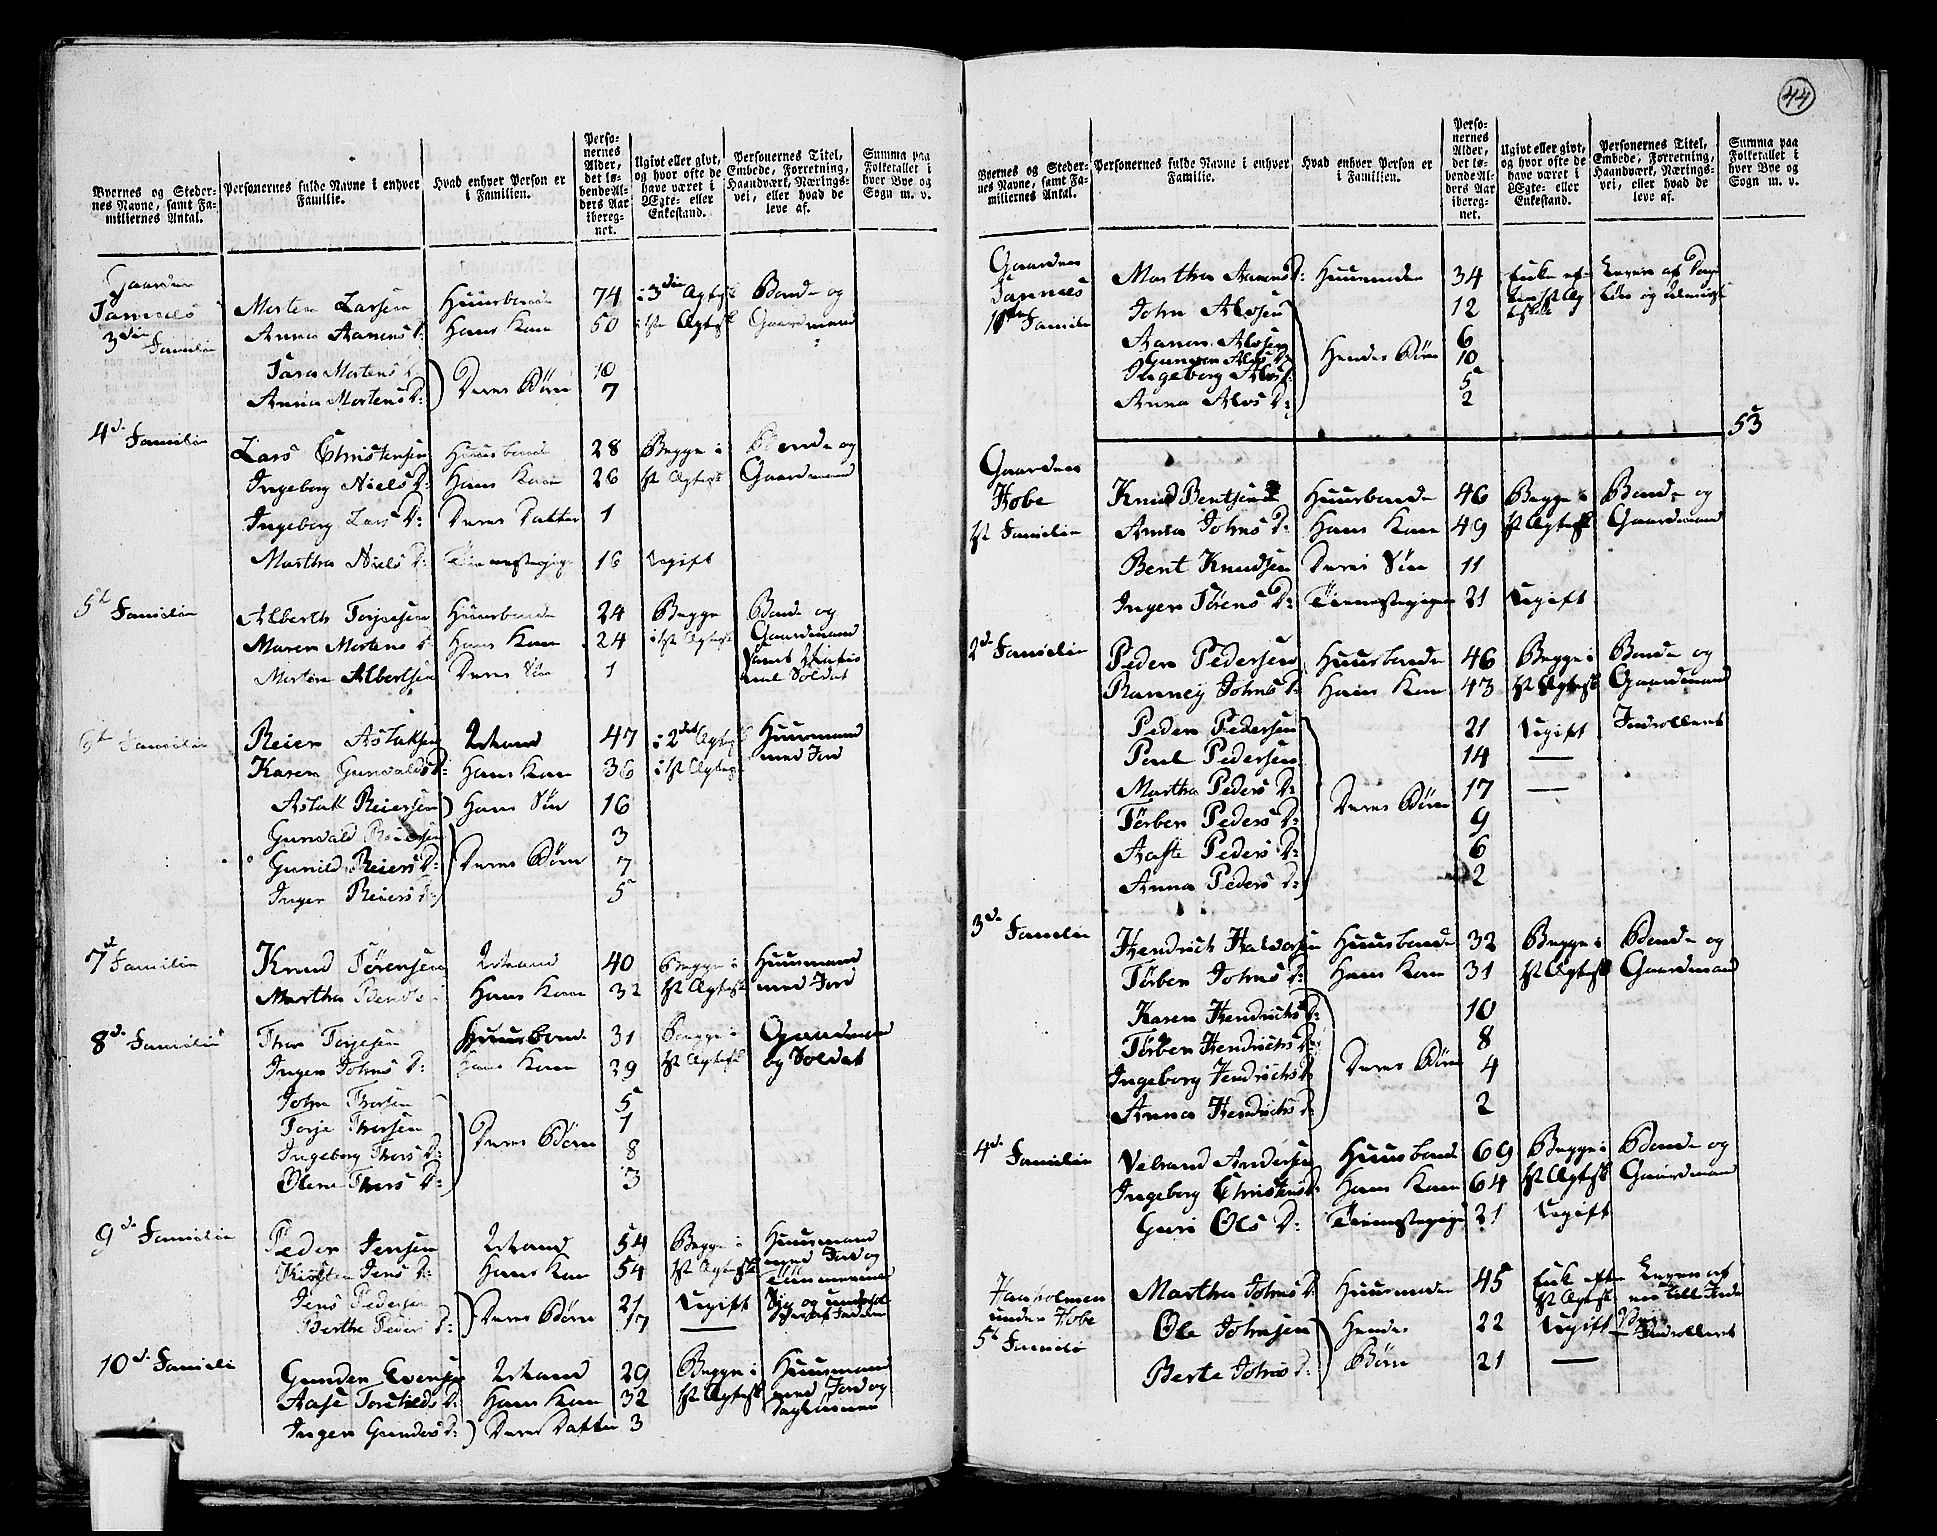 44
Byernes og Stedernes Navne, samt Familiernes Antal.
Personernes fulde Navne i enhver Familie.
Hvad enhver Person er i Familien.
Personernes Alder, det løbende Alders Aar iberegnet.
Ugivt eller givt, og hvor ofte de have været i Ægte- eller Enkestand.
Personernes Titel, Embede, Forretning, Haandværk, Næringsvei, eller hvad de leve af.
Summa paa Folketallet i hver Bye og Sogn m. v.
Gaarden
Morten Larsen Huusbonde 74 i 3die Ægtesk Bonde og
3die Familie Anna Aanens D: Hans Kone 50 i 1st Ægtesk Gaardmand
Tara Mortens D: 10
Anna Mortens D: Deres Børn 7
4d. Familie
Lars Christensen Huusbonde 28 Begge i Bonde og
Ingeborg Niels D: Hans Kone 26 1st Ægtesk Gaardmand
Ingeborg Lars D: Deres Datter 1
Martha Niels D: Tienestepige 16 Ugift
5t Familie Alberth Torjesen Huusbonde 24 Begge Bonde og
Maren Mortens D: Hans Kone 24 i 1st Ægtesk Gaardmand
Morten Albertsen Deres Søn 1 samt Natio
nal Soldat
6te Familie Reier Aslaksen Mand 47 i 2det Ægtesk Huusmand
Karen Gunvalds D: Hans Kone 36 i 1st Ægtesk med Jord
Aslak Reiersen Hans Søn 16
Gunvald Reiersen 3
Gunild Reiers D: Deres Børn 7
Inger Reiers D: 5
7d Familie Knud Sørensen Mand 40 Begge i Huusmand
Martha Hans Kone 32 1st Ægtesk med Jord
8d. Familie Thor Torjesen Huusbonde 31 Begge i Gaardmand
Inger Johns D: Hans Kone 29 1st Ægtesk og Soldat
John Thorsen 5
Torje Thorsen 1
Ingeborg Thors D: Deres Børn 8
Olene Thors D: 3
9d. Familie Peder Jensen Mand 54 Begge i Huusmand
Kirsten Jens D: Hans Kone 54 1st Ægtesk med Jord og
Tømmermand
Jens Pedersen Deres Børn 21 Ugift
Berthe Peders D: 17
10d. Familie Gunder Evensen Mand 29 Begge i Huusmand
Aase Torkields D: Hans Kone 32 1st Ægtesk med Jord og
Daglønner
Inger Gunders D: Deres Datter 3
Byernes og Stedernes Navne, samt Familiernes Antal.
Personernes fulde Navne i enhver Familie.
Hvad enhver Person er i Familien.
Personernes Alder, det løbende Alders Aar iberegnet.
Ugivt eller givt, og hvor ofte de have været i Ægte- eller Enkestand.
Personernes Titel, Embede, Forretning, Haandværk, Næringsvei, eller hvad de leve af.
Summa paa Folketallet i hver Bye og Sogn m. v.
Gaarden Martha Aanens D: Huusmoder 34 Enke ef- Lever af Dag
John Alvsen 12 ter 1st Æg løn og
11te Familie Aanon Alvsen 6 tesk
Gunvor Alvs D: Hendes Børn 10
Ingeborg Alvs D: 5
Anna Alvs D: 2
53
Gaarden
Hobe Knud Bentsen Huusbonde 46 Begge i Bonde og
1st Familie Anna Johns D: Hans Kone 49 1st Ægtesk Gaardmand
Bent Knudsen Deres Søn 11
Inger Sørens D: Tienestepige 21 Ugift
2d. Familie Peder Pedersen Huusbonde 46 Begge i Bonde og
Ranney Johns D: Hans Kone 43 1st Ægtesk Gaardmand
Peder Pedersen 21 Ugift Indrolleret
Poul Pedersen 14 —
Martha Peders D: 17 —
Tørber Peders D: Deres Børn 9
Aaste Peders D: 6
Anna Peders D: 2
3d. Familie Hendrich Halvorsen Huusbonde 32 Begge i Bonde og
Tørber Johns D: Hans Kone 31 1st Ægtesk Gaardmand
Karen Hendrichs D: 10
Tørber Hendrichs D: 8
Ingeborg Hendrichs D: Deres Børn 4
Anna Hendrichs D: 2
4d. Familie Velrand Andersen Huusbonde 69 Begge i Bonde og
Ingeborg Christens D: Hans Kone 64 1st Ægtesk Gaardmand
Guri Ols D: Tienestepige 21 Ugift
Haaholmen Martha Johns D: Huusmoder 45 Enke efter Lever af
under Hobe 1st Ægtesk
5t Familie Ole Johnsen Hendes 22 Ugift Indrolleret
Berte Johns D: Børn 21 —